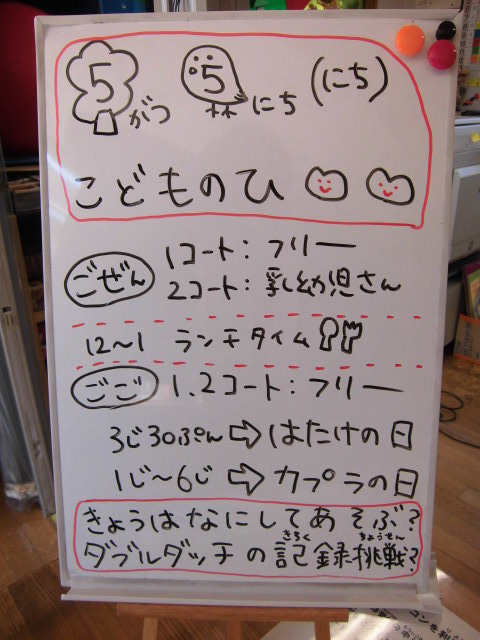 5がつ 5にち (にち)
こどものひ
ごぜん 1コート：フリー
2コート：乳幼児さん
12〜1 ランチタイム
ごご 1.2コート：フリー
3じ30ぷん⇨はたけの日
1じ〜6じ⇨カプラの日
きょうはなにしてあそぶ？
ダブルダッチの記録挑戦？
きろく ちょうせん